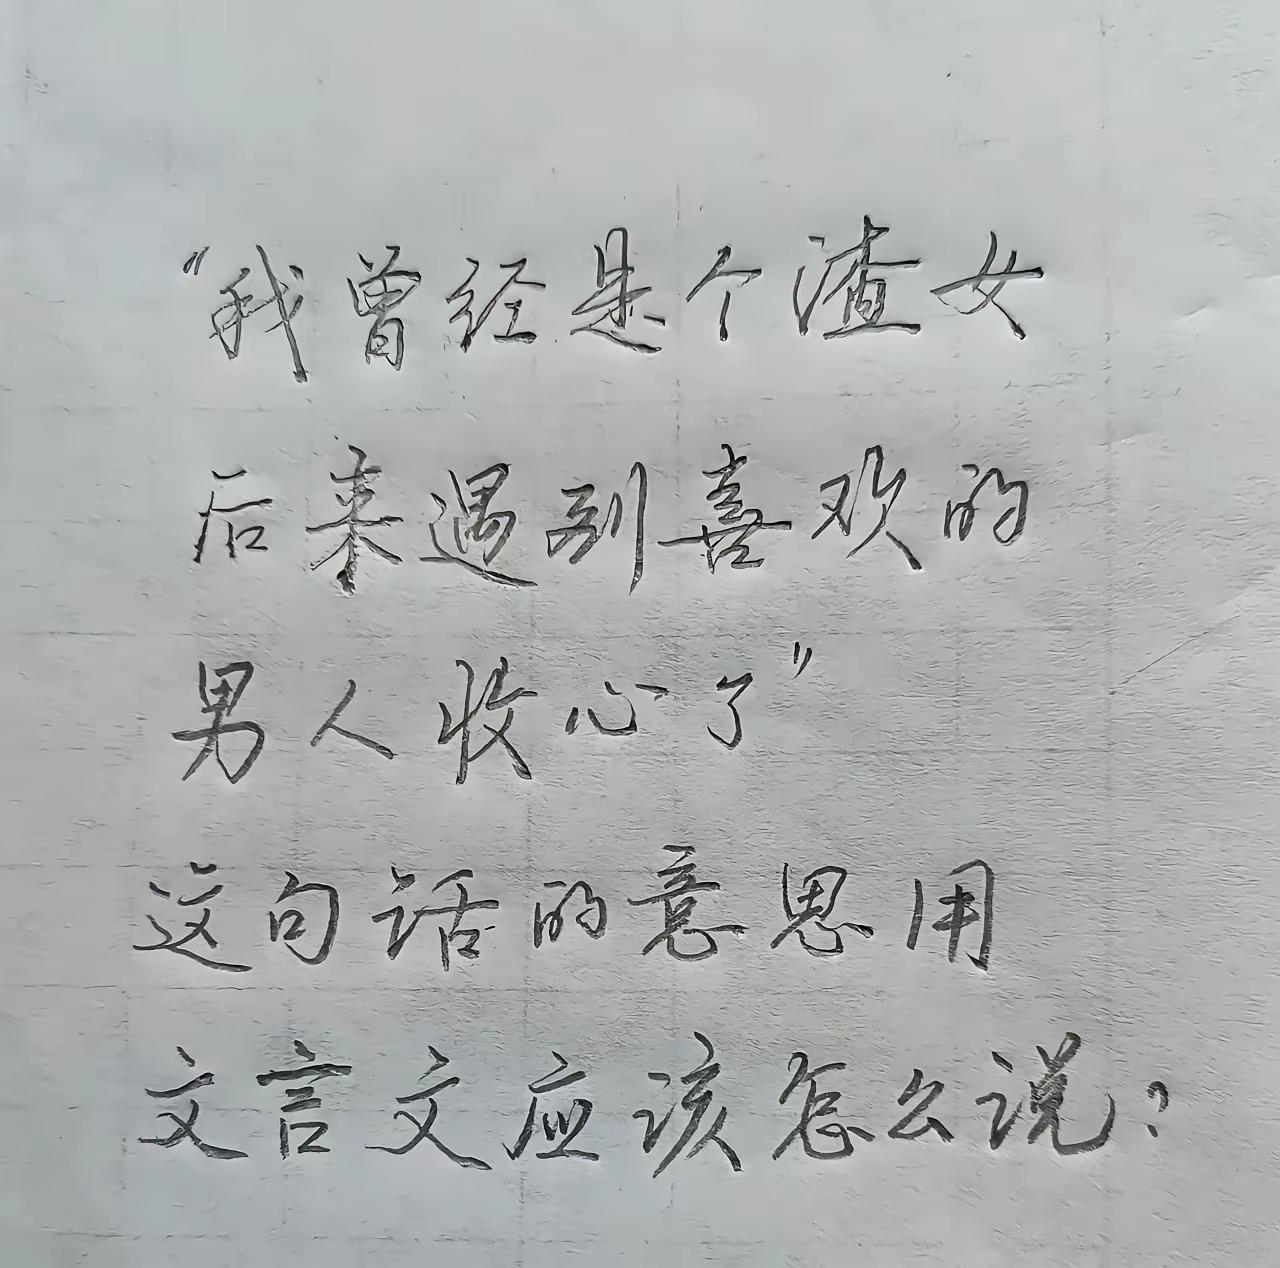 "我曾经是个渣女
后来遇到喜欢的
男人收心了"
这句话的意思用
文言文应该怎么说?